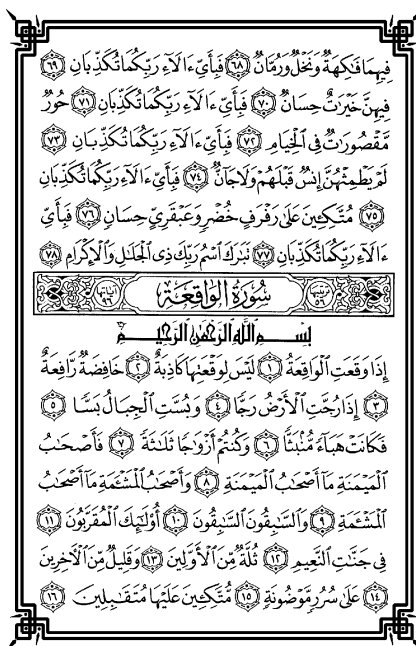 فِيهِمَا فَاكِهَةٌ وَنَخْلٌ وَرُمَّانٌ ٦٨ فَبِأَيِّ ءَالَآءِ رَبِّكُمَا تُكَذِّبَانِ ٦٩
فِيهِنَّ خَيْرَاتٌ حِسَانٌ ٧٠ فَبِأَيِّ ءَالَآءِ رَبِّكُمَا تُكَذِّبَانِ ٧١ حُورٌ
مَّقْصُورَاتٌ فِي الْخِيَامِ ٧٢ فَبِأَيِّ ءَالَآءِ رَبِّكُمَا تُكَذِّبَانِ ٧٣
لَمْ يَطْمِثْهُنَّ إِنسٌ قَبْلَهُمْ وَلَا جَآنٌّ ٧٤ فَبِأَيِّ ءَالَآءِ رَبِّكُمَا تُكَذِّبَانِ
٧٥ مُتَّكِئِينَ عَلَى رَفْرَفٍ خُضْرٍ وَعَبْقَرِيٍّ حِسَانٍ ٧٦ فَبِأَيِّ
ءَالَآءِ رَبِّكُمَا تُكَذِّبَانِ ٧٧ تَبَارَكَ اسْمُ رَبِّكَ ذِي الْجَلَالِ وَالْإِكْرَامِ ٧٨
سُورَةُ الْوَاقِعَةِ
بسم الله الرحمن الرحيم
إِذَا وَقَعَتِ الْوَاقِعَةُ ١ لَيْسَ لِوَقْعَتِهَا كَاذِبَةٌ ٢ خَافِضَةٌ رَّافِعَةٌ
٣ إِذَا رُجَّتِ الْأَرْضُ رَجًّا ٤ وَبُسَّتِ الْجِبَالُ بَسًّا ٥
فَكَانَتْ هَبَآءً مُّنۢبَثًّا ٦ وَكُنتُمْ أَزْوَاجًا ثَلَاثَةً ٧ فَأَصْحَابُ
الْمَيْمَنَةِ مَآ أَصْحَابُ الْمَيْمَنَةِ ٨ وَأَصْحَابُ الْمَشْئَمَةِ مَآ أَصْحَابُ
الْمَشْئَمَةِ ٩ وَالسَّابِقُونَ السَّابِقُونَ ١٠ أُوْلَٰئِكَ الْمُقَرَّبُونَ ١١
فِي جَنَّاتِ النَّعِيمِ ١٢ ثُلَّةٌ مِّنَ الْأَوَّلِينَ ١٣ وَقَلِيلٌ مِّنَ الْآخِرِينَ
١٤ عَلَى سُرُرٍ مَّوْضُونَةٍ ١٥ مُّتَّكِئِينَ عَلَيْهَا مُتَقَابِلِينَ ١٦